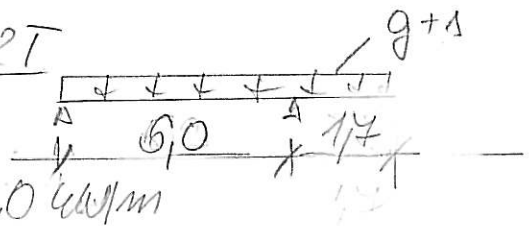 2T
g+s
6,0 1,7
,0 kN/m